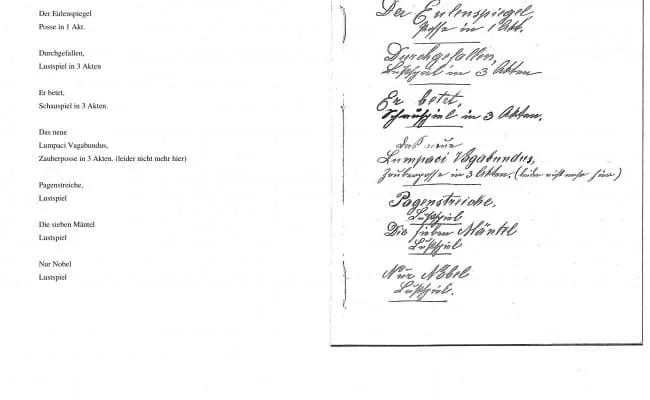 Der Eulenspiegel
Posse in 1 Akt.
Durchgefallen,
Lustspiel in 3 Akten
Er betet,
Schauspiel in 3 Akten.
Das neue
Lumpaci Vagabundus,
Zauberposse in 3 Akten. (leider nicht mehr hier)
Pagenstreiche,
Lustspiel
Die sieben Mäntel
Lustspiel
Nur Nobel
Lustspiel
Der Eulenspiegel,
Posse in 1 Akt.
Durchgefallen,
Lustspiel in 3 Akten
Er betet,
Schauspiel in 3 Akten.
Das neue
Lumpaci Vagabundus,
Zauberposse in 3 Akten. (leider nicht mehr hier)
Pagenstreiche,
Lustspiel
Die sieben Mäntel
Lustspiel
Nur Nobel
Lustspiel.